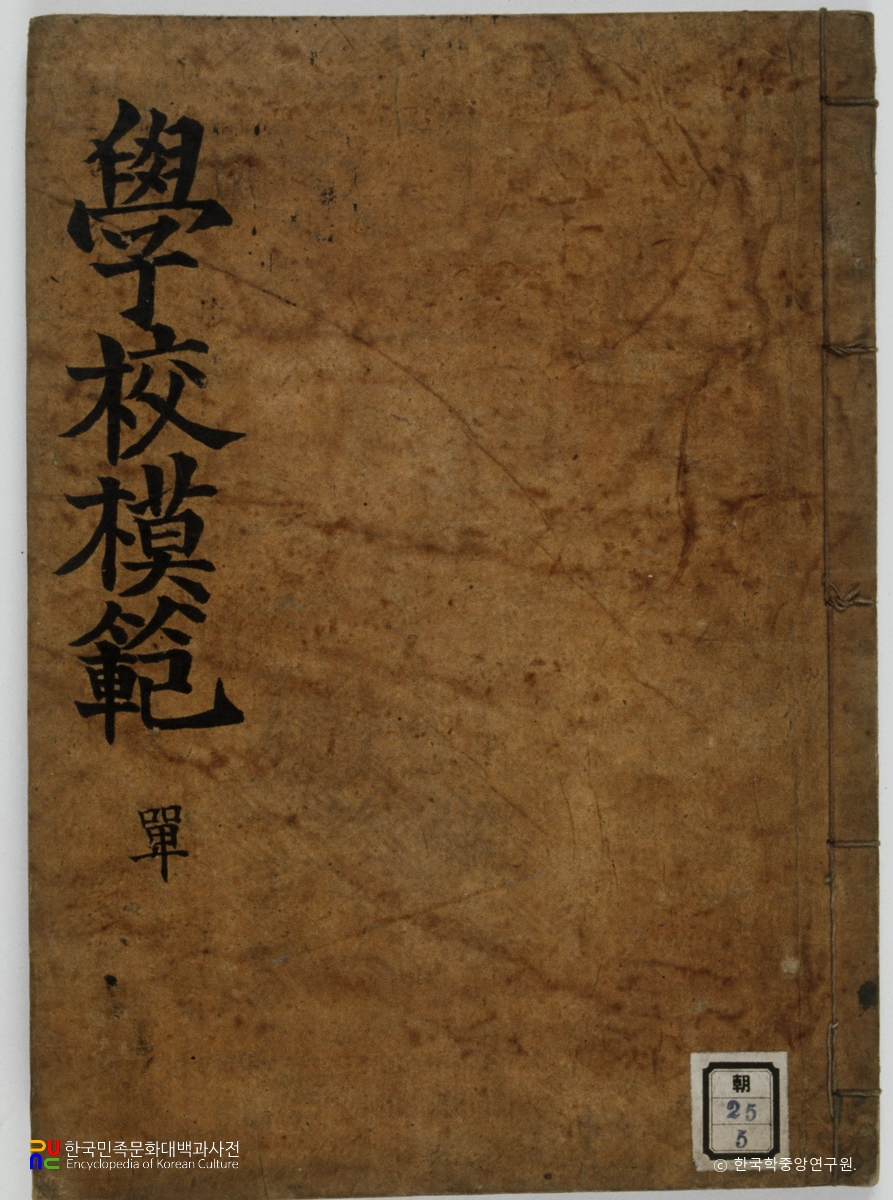 學校模範
單
朝
25
5
한국민족문화대백과사전
Encyclopedia of Korean Culture
© 한국학중앙연구원.